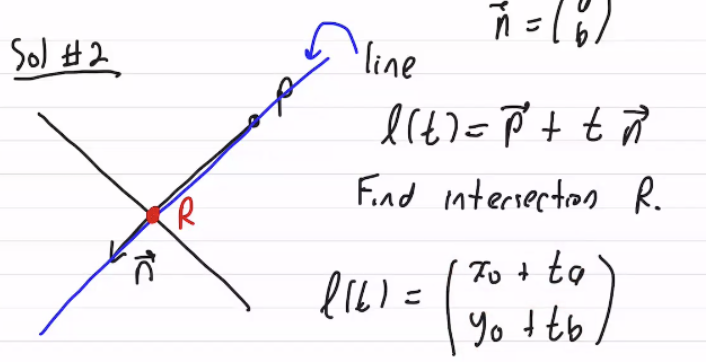 n⃗ = (a b)
Sol #2
line
P
l(t) = p⃗ + t n⃗
Find intersection R.
R
n⃗
l(t) = (x₀ + ta
y₀ + tb)